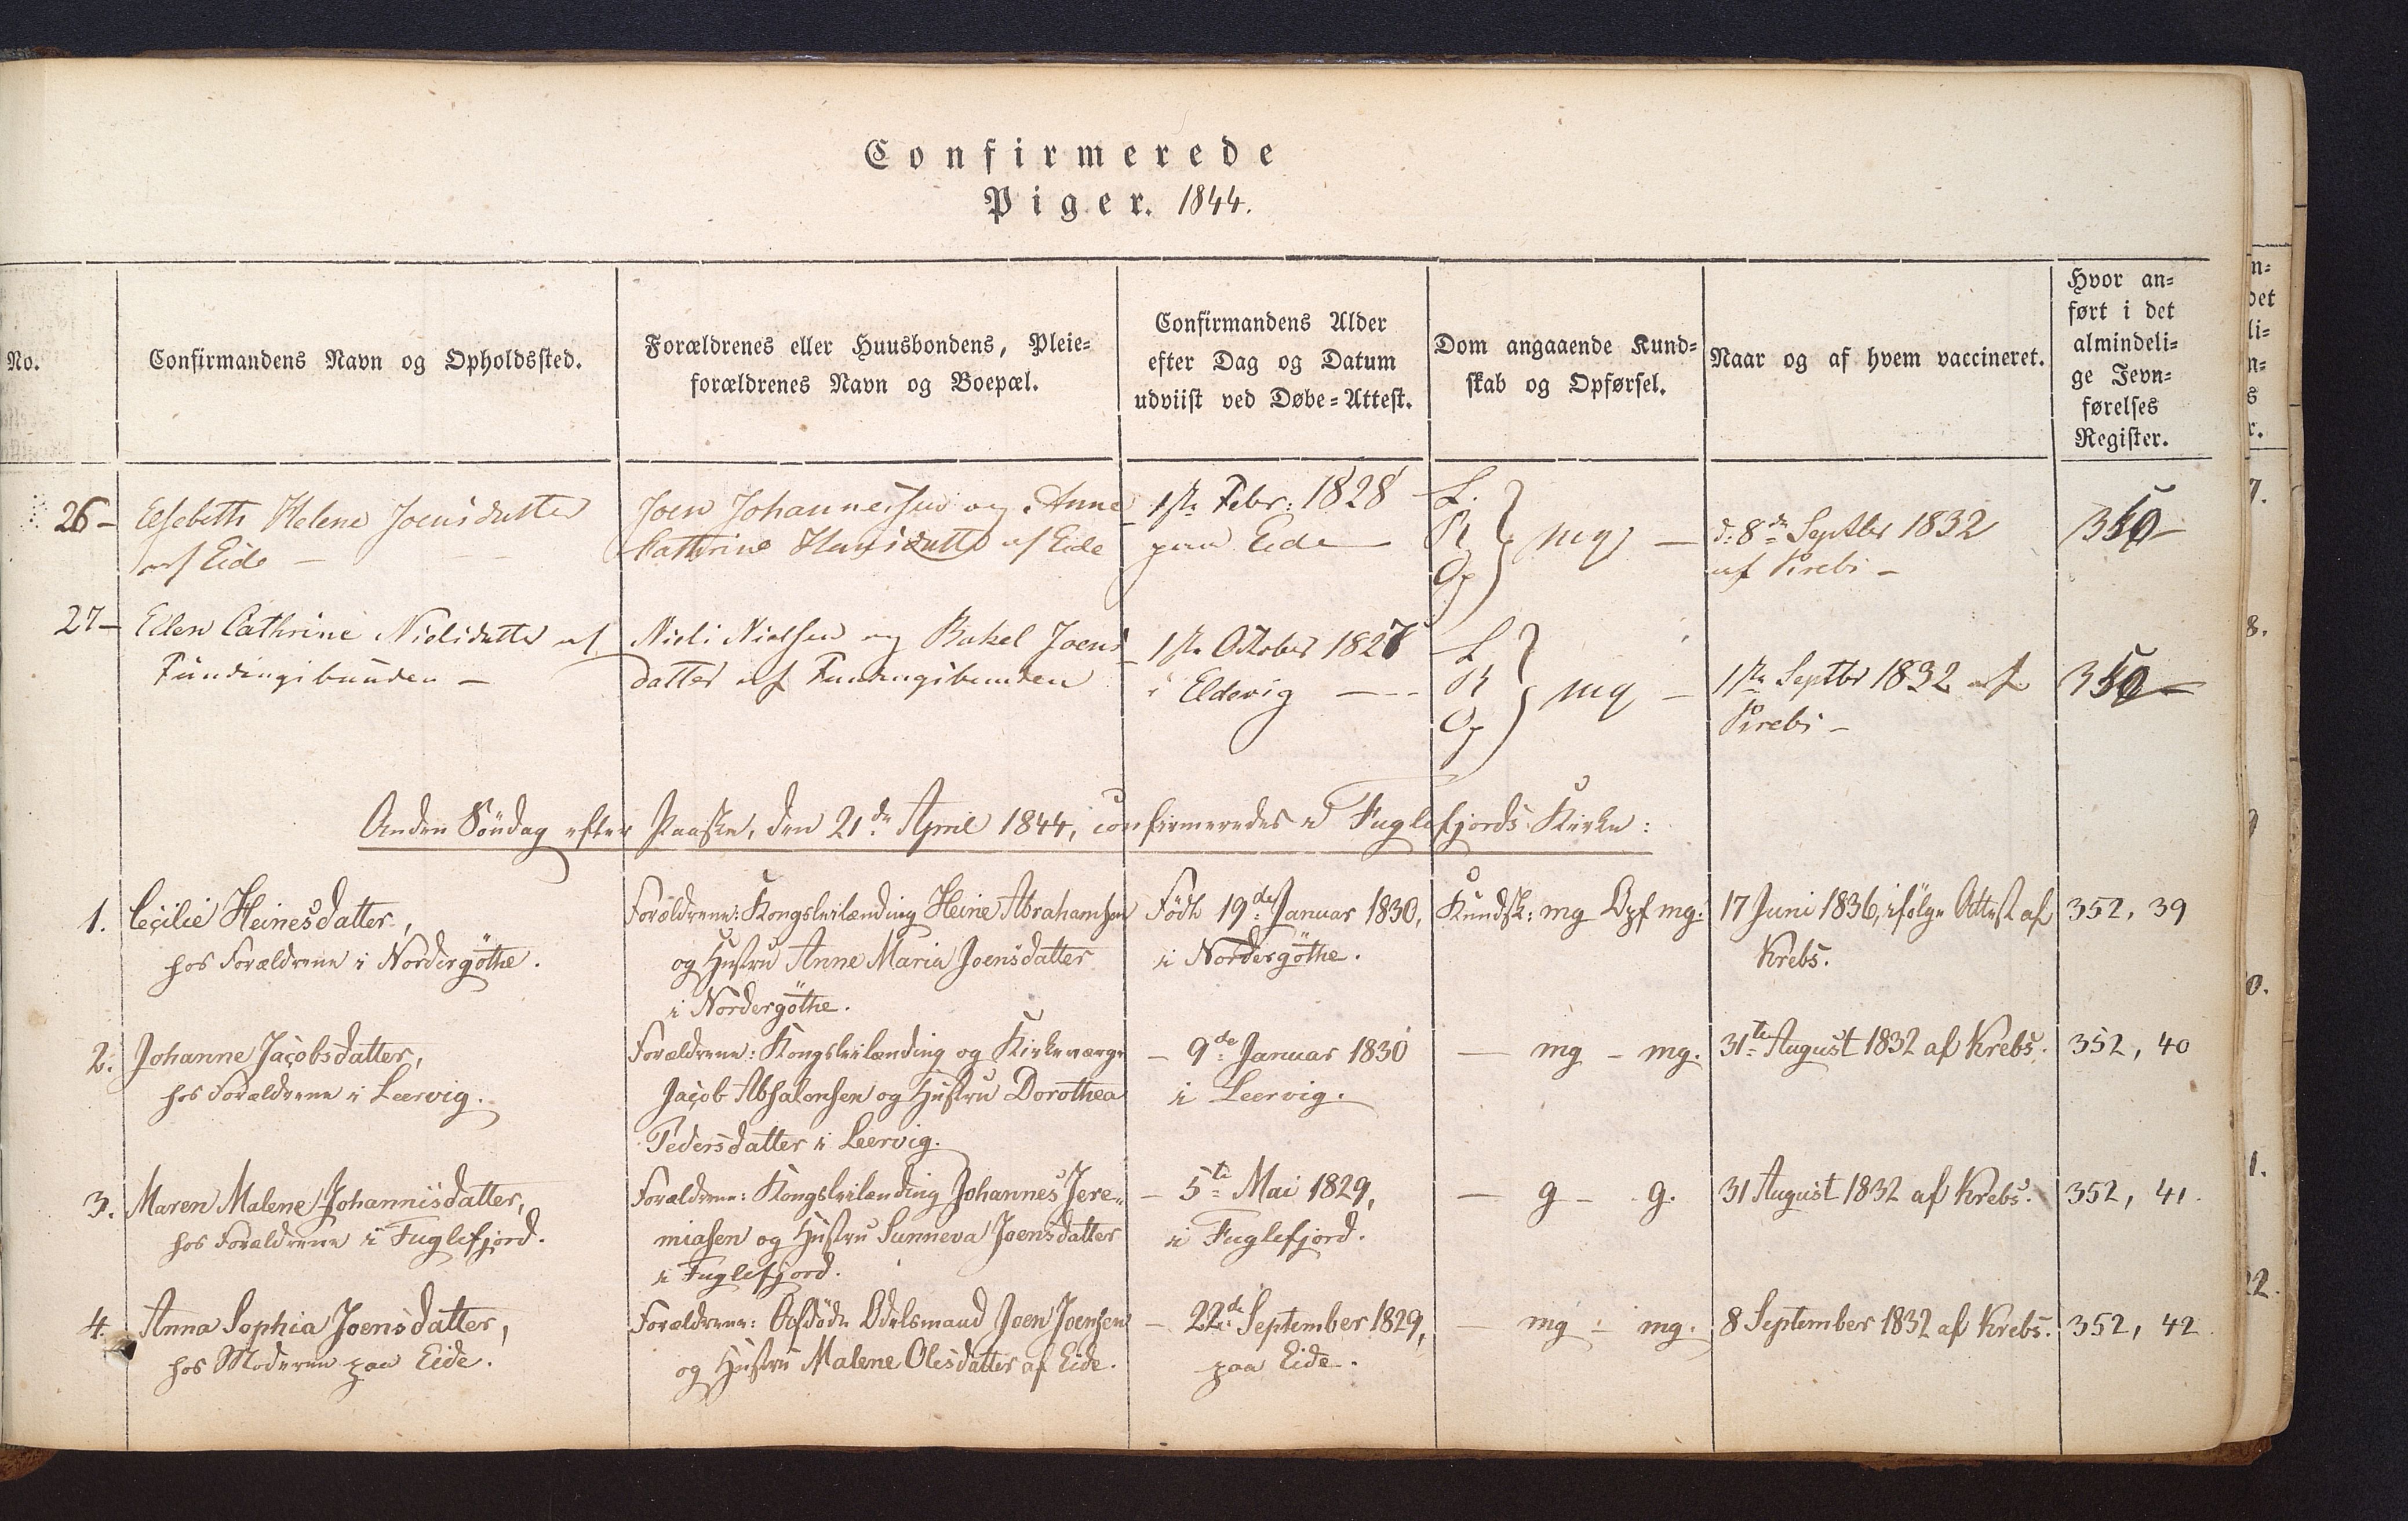 Confirmerede
Piger. 1844.
No.
Confirmandens Navn og Opholdssted.
Forældrenes eller Huusbondens, Pleie=
forældrenes Navn og Boepæl.
Confirmandens Alder
efter Dag og Datum
udviist ved Døbe=Attest.
Dom angaaende Kund=
skab og Opførsel.
Naar og af hvem vaccineret.
Hvor an=
ført i det
almindeli=
ge Jevn=
førelses
Register.
26 – Elsebeth Helene Joensdatter
af Eide –
Joen Johannessen og Anne
Cathrine Hansdatter af Eide
1ste Febr: 1828
paa Eide –
L.
K
Op
mg –
d: 8de Septbr 1832
af Krebs –
350 –
27 – Ellen Cathrine Nielsdatter af
Fundingsbunden –
Niels Nielsen og Rakel Joens
datter af Funningsbunden
1ste October 1827
i Eldevig –
L
K
Op
mg –
1ste Septbr 1832 af
Krebs –
350 –
Anden Söndag efter Paaske, den 21de April 1844, confirmeredes i Fuglefjords Kirke:
1. Cecilie Heinesdatter,
hos Forældrene i Nordergöthe.
Forældrene: Kongsleilænding Heine Abrahamsen
og Hustru Anne Maria Joensdatter
i Nordergöthe.
Födt 19de Januar 1830,
i Nordergöthe.
Kundsk: mg Opf mg.
17 Juni 1836, ifölge Attest af
Krebs.
352, 39
2. Johanne Jacobsdatter,
hos Forældrene i Leervig.
Forældrene: Kongsleilænding og Kirkeværge
Jacob Absalonsen og Hustru Dorothea
Pedersdatter i Leervig.
– 9de Januar 1830
i Leervig.
– mg – mg.
31te August 1832 af Krebs.
352, 40
3. Maren Malene Johannisdatter,
hos Forældrene i Fuglefjord.
Forældrene: Kongsleilænding Johannes Jere=
miasen og Hustru Sunneva Joensdatter
i Fuglefjord.
– 5te Mai 1829,
i Fuglefjord.
– g – g.
31 August 1832 af Krebs.
352, 41.
4. Anna Sophia Joensdatter,
hos Moderen paa Eide.
Forældrene: Afdöde Odelsmand Joen Joensen
og Hustru Malene Olesdatter af Eide.
– 22de September 1829,
paa Eide.
– mg – mg.
8 September 1832 af Krebs.
352, 42